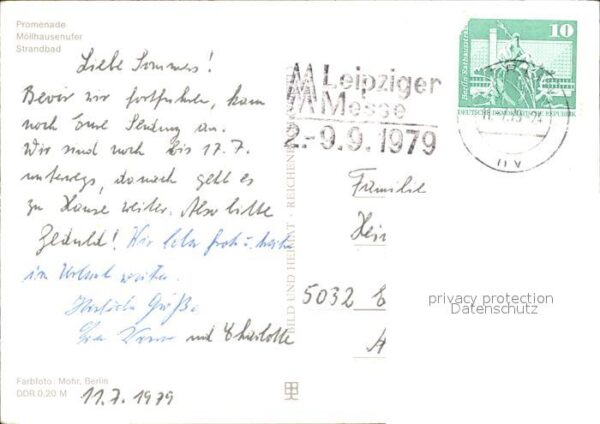 Promenade
Möllhausenufer
Strandbad
Liebe Sommers!
Bevor wir fortfuhren, kam
noch Eure Sendung an.
Wir sind noch bis 17.7.
unterwegs, danach geht es
zu Hause weiter. Also bitte
Geduld! Wir leben froh u. heiter
im Urlaub weiter.
Herzliche Grüße
und Charlotte
Farbfoto: Mohr, Berlin
DDR 0,20 M
11.7.1979
BILD UND HEIMAT · REICHEN
Leipziger
Messe
2.-9.9.1979
10
DEUTSCHE DEMOKRATISCHE REPUBLIK
Familie
Hei
5032 E
A
privacy protection
Datenschutz